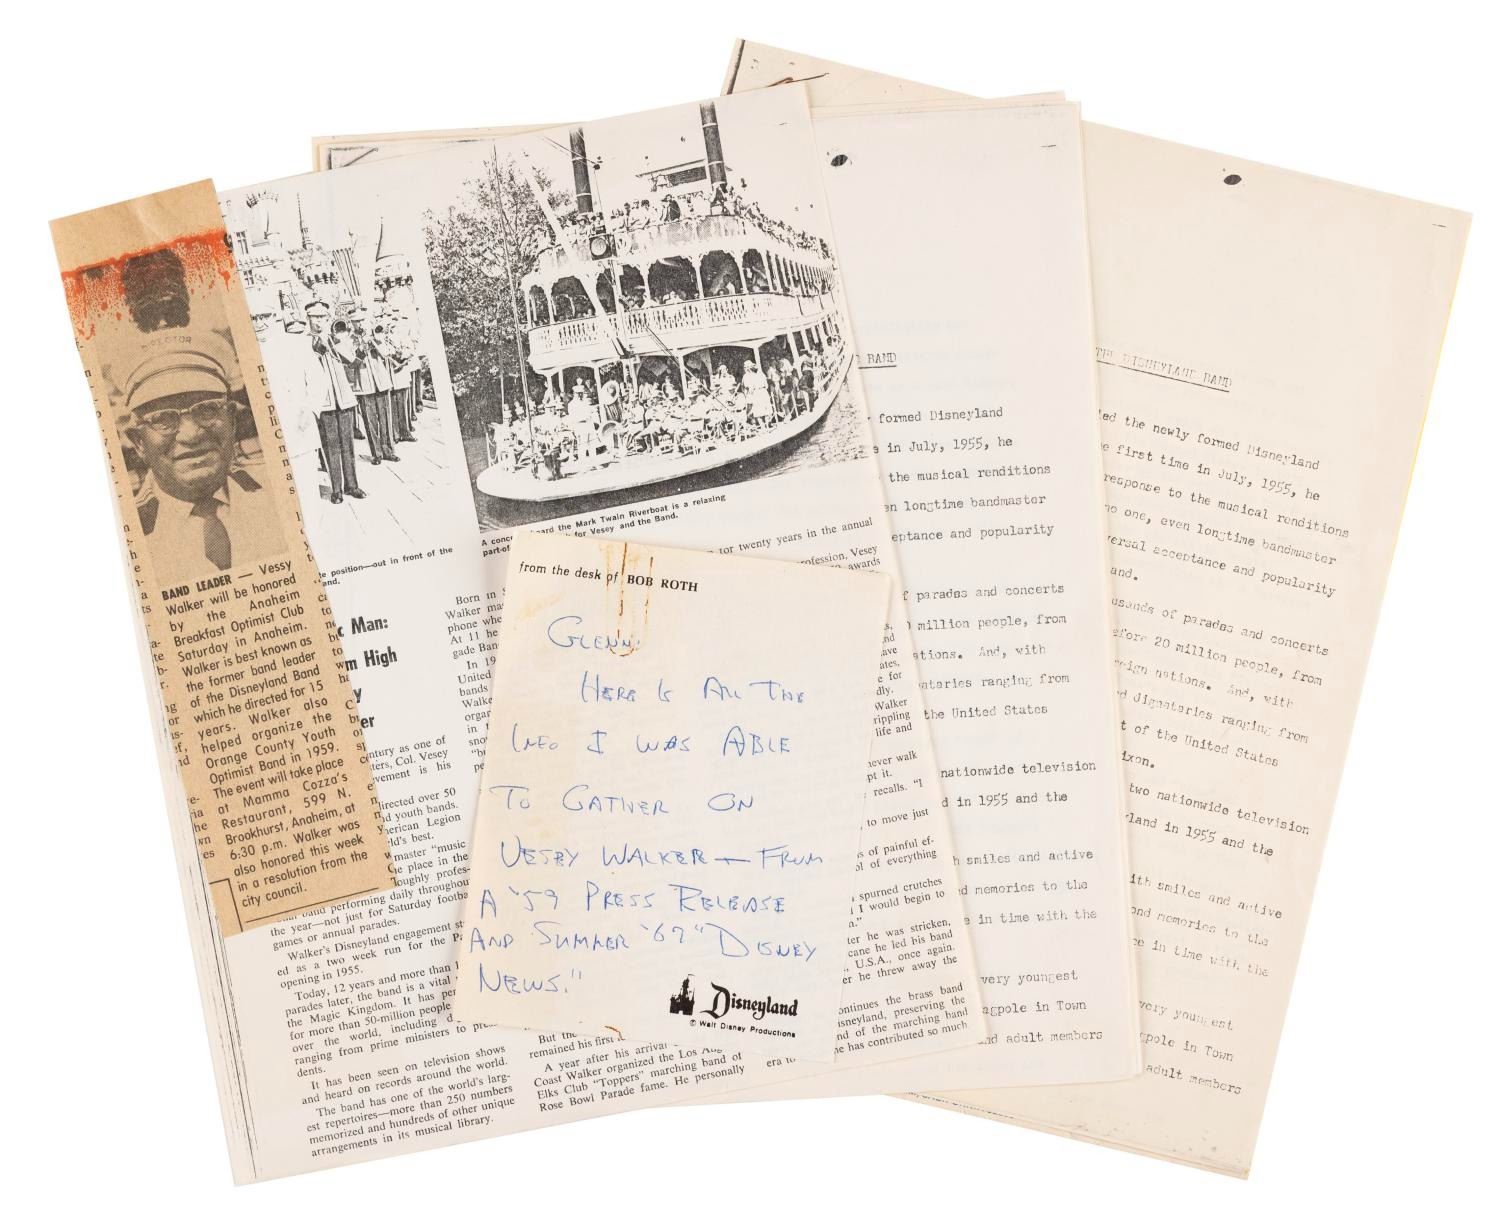 DIRECTOR
BAND LEADER — Vessy
Walker will be honored
by the Anaheim
Breakfast Optimist Club
Saturday in Anaheim.
Walker is best known as
the former band leader
of the Disneyland Band
which he directed for 15
years. Walker also
helped organize the
Orange County Youth
Optimist Band in 1959.
The event will take place
at Mamma Cozza's
Restaurant, 599 N.
Brookhurst, Anaheim, at
6:30 p.m. Walker was
also honored this week
in a resolution from the
city council.
position—out in front of the
and.
heard the Mark Twain Riverboat is a relaxing
part-of
for Vesey and the Band.
c Man:
m High
y
er
century as one of
ters, Col. Vesey
evement is his
directed over 50
d youth bands.
merican Legion
ld's best.
master "music
e place in the
oughly profes-
band performing daily throughout
the year—not just for Saturday footba
games or annual parades.
Walker's Disneyland engagement st
ed as a two week run for the Pa
opening in 1955.
Today, 12 years and more than 1
parades later, the band is a vital
the Magic Kingdom. It has per
for more than 50-million people
over the world, including d
ranging from prime ministers to presi-
dents.
It has been seen on television shows
and heard on records around the world.
The band has one of the world's larg-
est repertoires—more than 250 numbers
memorized and hundreds of other unique
arrangements in its musical library.
Born in S
Walker ma
phone whe
At 11 he
gade Ban
In 19
United
bands
Walke
orgar
in l
snov
"bu
pe
But the
remained his first
A year after his arrival
Coast Walker organized the Los Ang
Elks Club "Toppers" marching band of
Rose Bowl Parade fame. He personally
for twenty years in the annual
rofession, Vesey
awards
nd
ave
ates,
e for
dly.
Walker
rippling
life and
never walk
pt it.
recalls. "I
to move just
s of painful ef-
ol of everything
spurned crutches
I would begin to
n."
ter he was stricken,
cane he led his band
, U.S.A., once again.
er he threw away the
ontinues the brass band
isneyland, preserving the
nd of the marching band
he has contributed so much
era to
from the desk of BOB ROTH
Glenn:
Here is all the
info I was able
to gather on
Vesey Walker — from
a '59 press release
and Summer '67 "Disney
News."
Disneyland
© Walt Disney Productions
BAND
formed Disneyland
e in July, 1955, he
the musical renditions
en longtime bandmaster
eptance and popularity
f parades and concerts
million people, from
ations. And, with
nataries ranging from
the United States
nationwide television
d in 1955 and the
h smiles and active
nd memories to the
e in time with the
very youngest
agpole in Town
nd adult members
THE DISNEYLAND BAND
led the newly formed Disneyland
e first time in July, 1955, he
response to the musical renditions
no one, even longtime bandmaster
versal acceptance and popularity
and.
usands of parades and concerts
efore 20 million people, from
reign nations. And, with
d dignataries ranging from
t of the United States
ixon.
two nationwide television
yland in 1955 and the
ith smiles and active
ond memories to the
ce in time with the
very youngest
gpole in Town
adult members